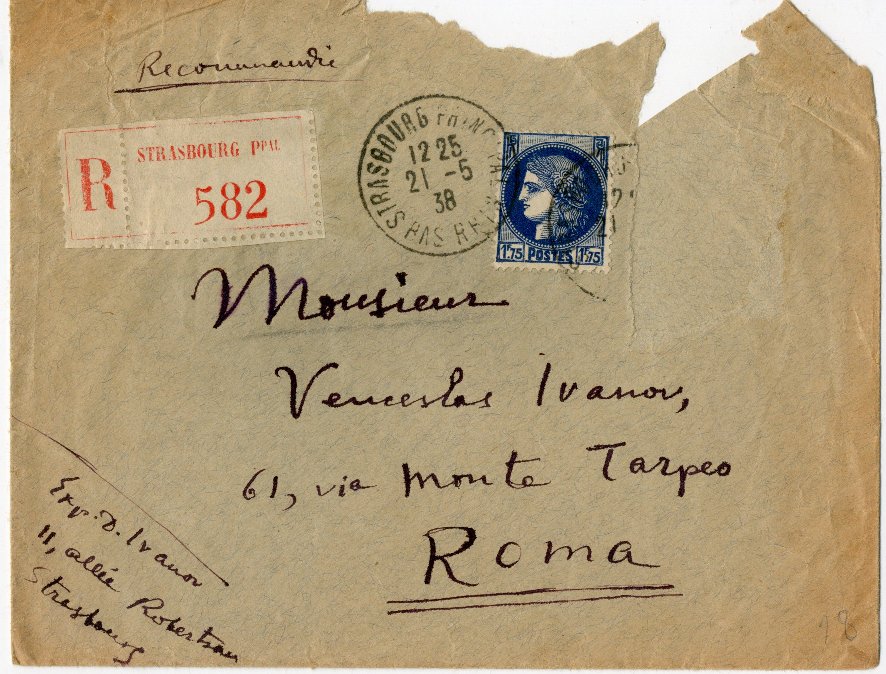 Recommandée
R STRASBOURG PPAL
582
STRASBOURG PRINCIPAL
12 25
21 -5
38
BAS RHIN
1F75 POSTES 1F75
12
21
Monsieur
Venceslas Ivanov,
61, via Monte Tarpeo
Roma
Exp. D. Ivanov
11, allée Robertsau
Strasbourg
18